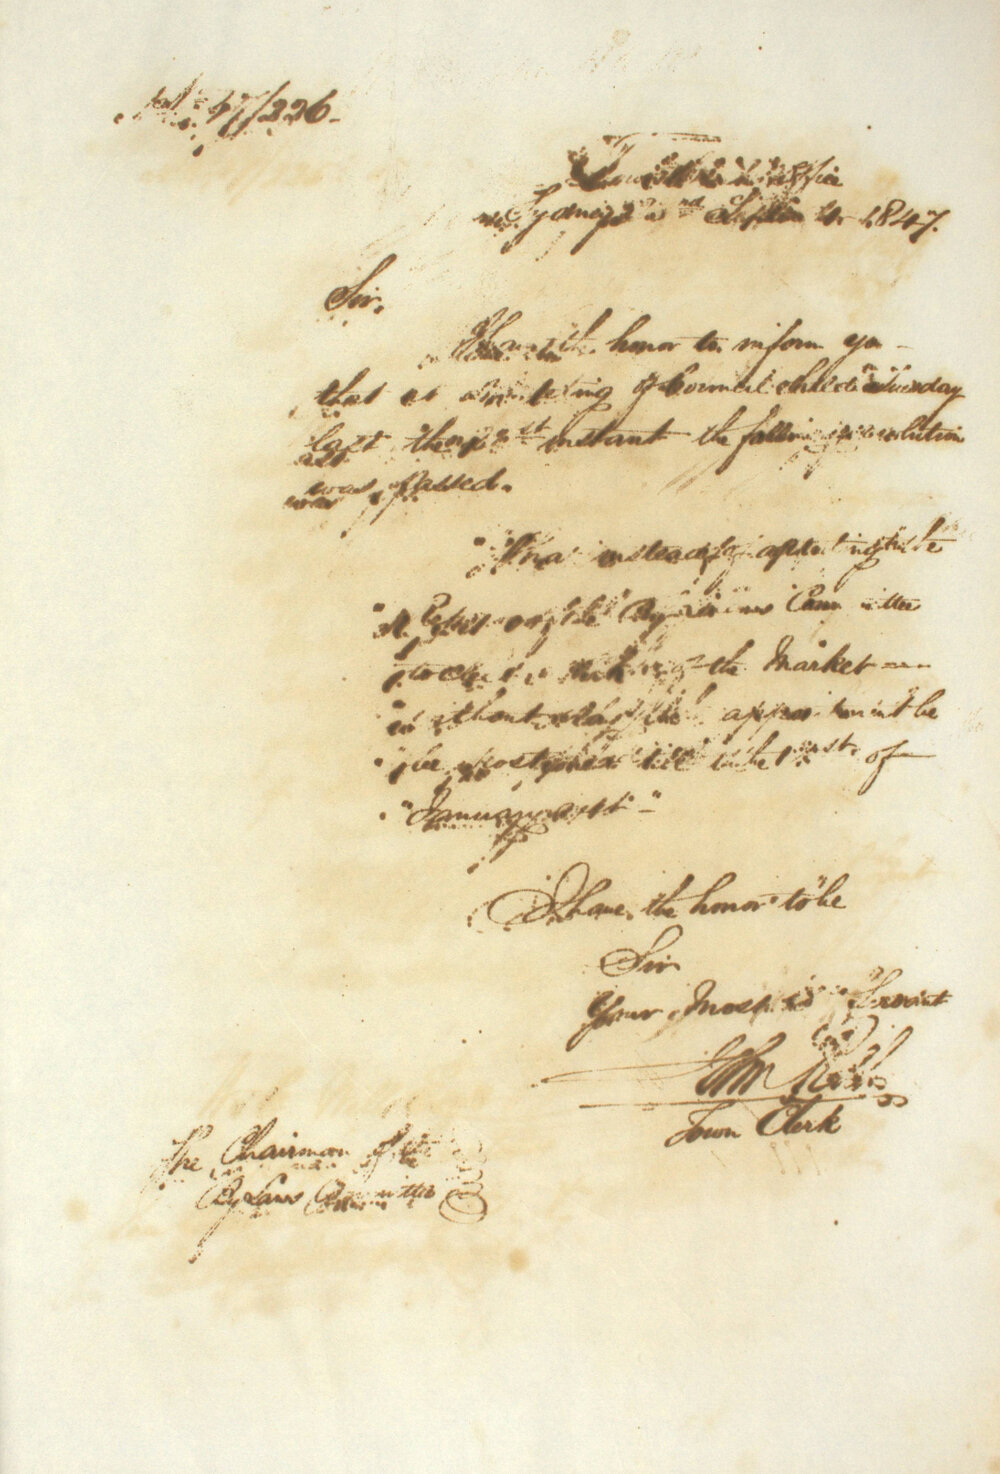 47/226
Town Clerk's Office
Sydney 22nd Septr 1847.
Sir,
I have the honor to inform you
that at a meeting of Council held on Tuesday
last the 21st instant the following resolution
was passed.
"That instead of adopting the
"Report of the By Laws Committee
the Market
"without the appointment be
"be postponed till the 1st of
"January next"
I have the honor to be
Sir
Your Most Servant
John Rae
Town Clerk
The Chairman of the
By Laws Committee